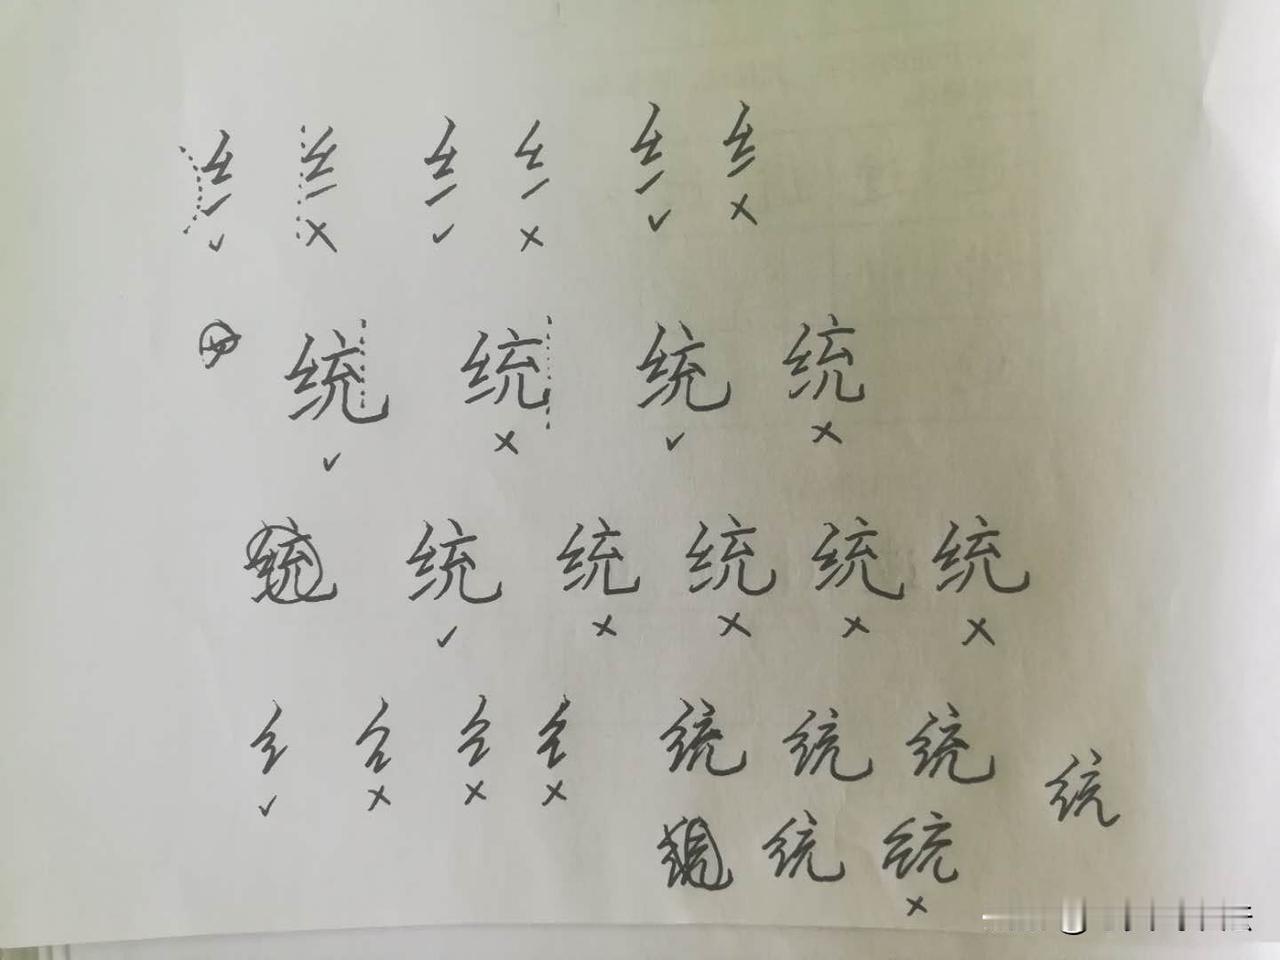 纟 纟 纟 纟 纟 纟
✓ × ✓ × ✓ ×
统 统 统 统
✓ × ✓ ×
统 统 统 统 统 统
✓ × × × ×
纟 纟 纟 纟 统 统 统 统
✓ × × ×
统 统
×